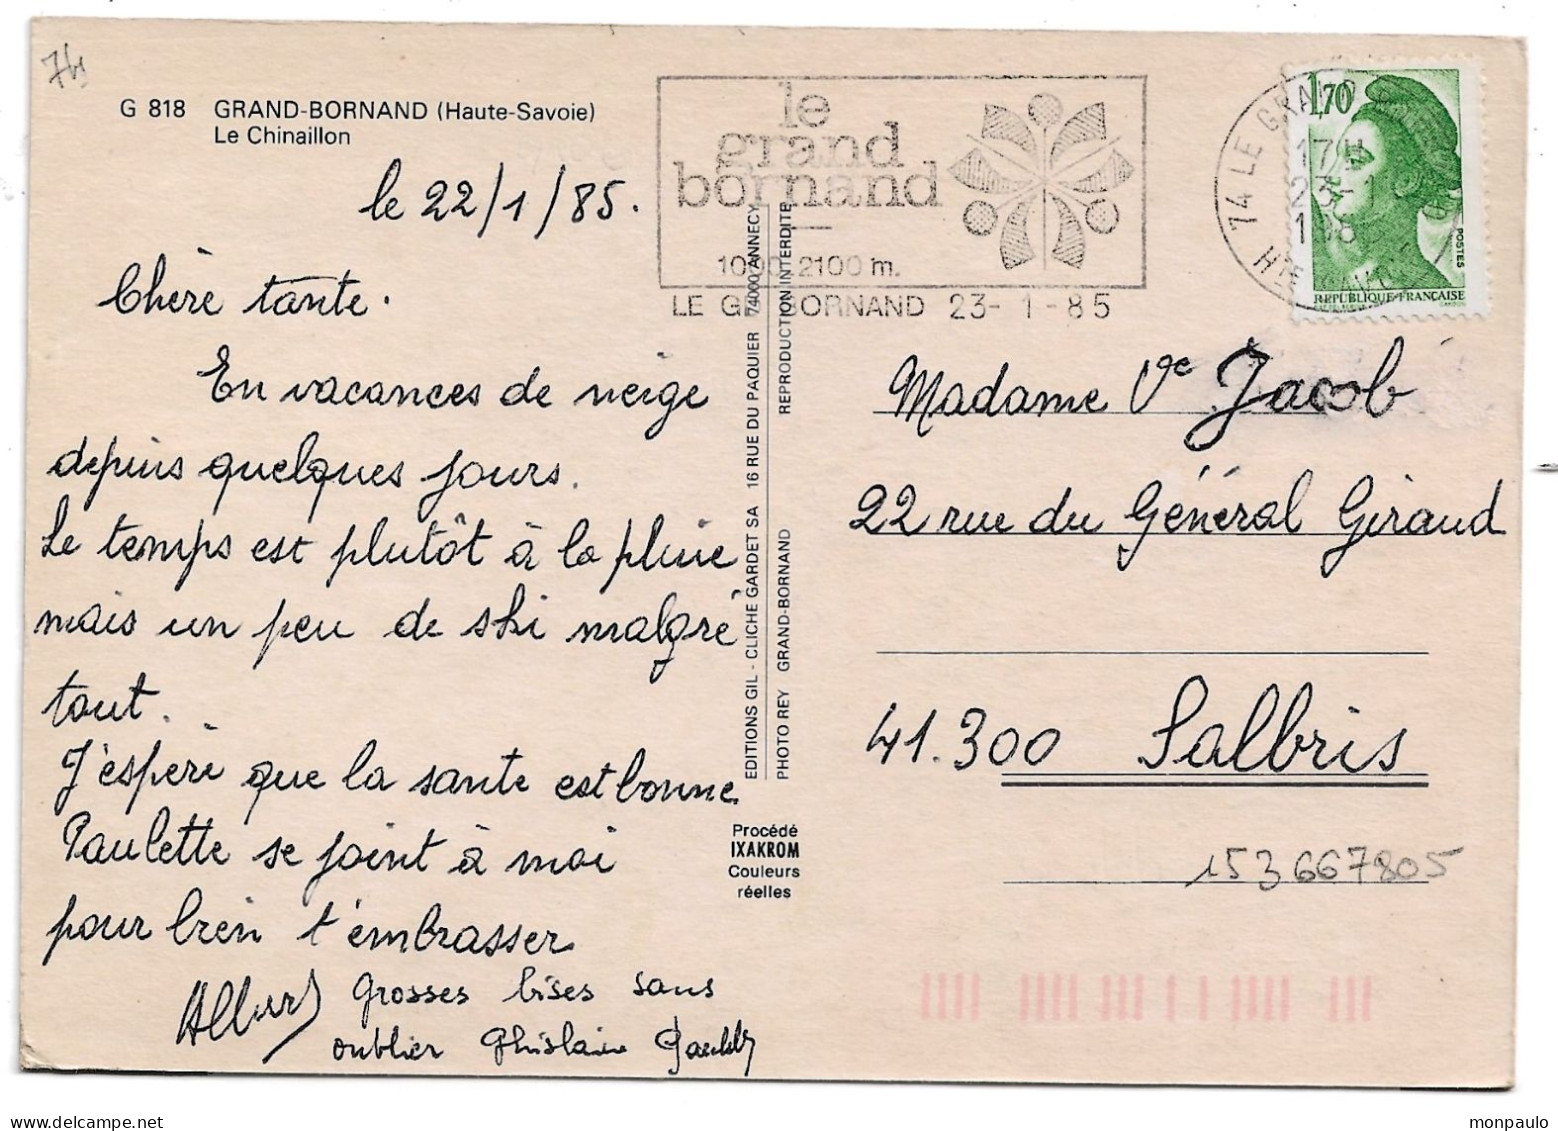 74
G 818 GRAND-BORNAND (Haute-Savoie)
Le Chinaillon
le 22/1/85.
Chère tante.
En vacances de neige
depuis quelques jours.
Le temps est plutôt à la pluie
mais un peu de ski malgré
tout.
J'espère que la santé est bonne.
Paulette se joint à moi
pour bien t'embrasser
Albert
Grosses bises sans
oublier Ghislaine Paulette
le
grand
bornand
1000-2100 m.
LE GD BORNAND 23-1-85
74 LE GRAND BORNAND
17H
23-1
1985
Hte SAVOIE
1,70
POSTES
REPUBLIQUE FRANCAISE
EDITIONS GIL - CLICHE GARDET SA 16 RUE DU PAQUIER 74000 ANNECY
PHOTO REY GRAND-BORNAND REPRODUCTION INTERDITE
Procédé
IXAKROM
Couleurs
réelles
Madame Ve Jacob
22 rue du Général Giraud
41.300 Salbris
153667805
monpaulo